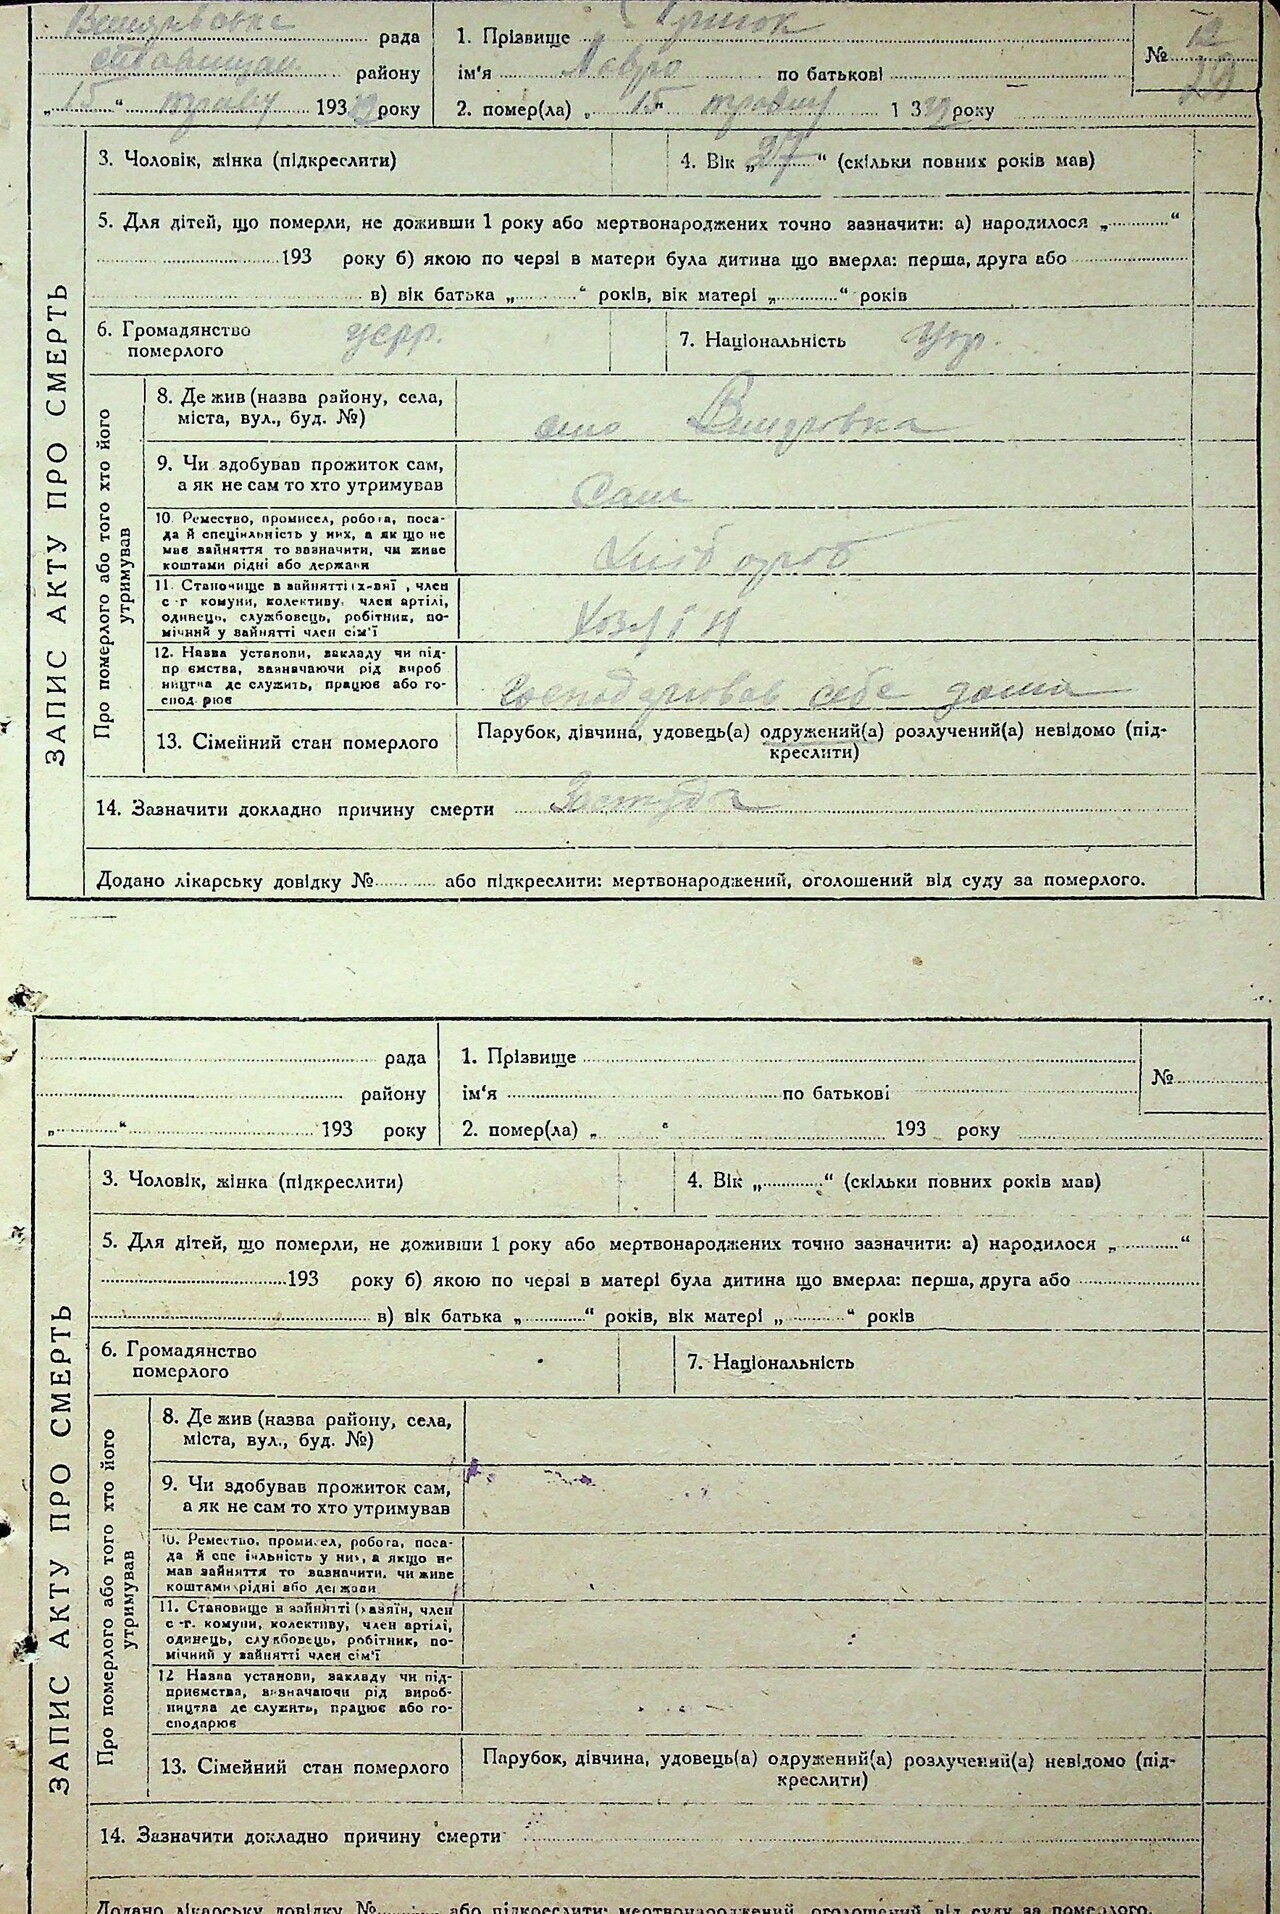 рада
1. Прізвище
№
району
ім'я Лавро по батькові
„15“ травн 193 року
2. помер(ла) „15“ травня 1 3 року
3. Чоловік, жінка (підкреслити)
4. Вік „27“ (скільки повних років мав)
5. Для дітей, що померли, не доживши 1 року або мертвонароджених точно зазначити: а) народилося „ “
193 року б) якою по черзі в матери була дитина що вмерла: перша, друга або
в) вік батька „ “ років, вік матері „ “ років
ЗАПИС АКТУ ПРО СМЕРТЬ
6. Громадянство померлого усрр.
7. Національність Укр.
Про померлого або того хто його утримував
8. Де жив (назва району, села,
міста, вул., буд. №)
село
9. Чи здобував прожиток сам,
а як не сам то хто утримував
Сам
10 Ремество, промисел, робота, поса-
да й спеціяльність у них, а як що не
має зайняття то зазначити, чи живе
коштами рідні або держави
Хлібороб
11. Становище в зайнятті , член
с-г комуни, колективу, член артілі,
одинець, службовець, робітник, по-
мічний у зайнятті член сім'ї
Хозяїн
12. Назва установи, закладу чи під-
пр ємства, зазначаючи рід вироб
ництва де служить, працює або го-
спод рює
Господарював себе дома
13. Сімейний стан померлого
Парубок, дівчина, удовець(а) одружений(а) розлучений(а) невідомо (під-
креслити)
14. Зазначити докладно причину смерти Застуда
Додано лікарську довідку № або підкреслити: мертвонароджений, оголошений від суду за померлого.
рада
1. Прізвище
№
району
ім'я по батькові
„ “ 193 року
2. помер(ла) „ “ 193 року
3. Чоловік, жінка (підкреслити)
4. Вік „ “ (скільки повних років мав)
5. Для дітей, що померли, не доживши 1 року або мертвонароджених точно зазначити: а) народилося „ “
193 року б) якою по черзі в матері була дитина що вмерла: перша, друга або
в) вік батька „ “ років, вік матері „ “ років
ЗАПИС АКТУ ПРО СМЕРТЬ
6. Громадянство
померлого
7. Національність
Про померлого або того хто його утримував
8. Де жив (назва району, села,
міста, вул., буд. №)
9. Чи здобував прожиток сам,
а як не сам то хто утримував
10. Ремество, промисел, робота, поса-
да й спе іяльність у них, а якщо не
мав зайняття то зазначити, чи живе
коштами рідні або держави
11. Становище в зайнятті (хазяїн, член
с-г. комуни, колективу, член артілі,
одинець, службовець, робітник, по-
мічний у зайнятті член сім'ї
12 Назва установи, закладу чи під-
приємства, зазначаючи рід вироб-
ництва де служить, працює або го-
сподарює
13. Сімейний стан померлого
Парубок, дівчина, удовець(а) одружений(а) розлучений(а) невідомо (під-
креслити)
14. Зазначити докладно причину смерти
Додано лікарську довідку № або підкреслити: мертвонароджений, оголошений від суду за померлого.